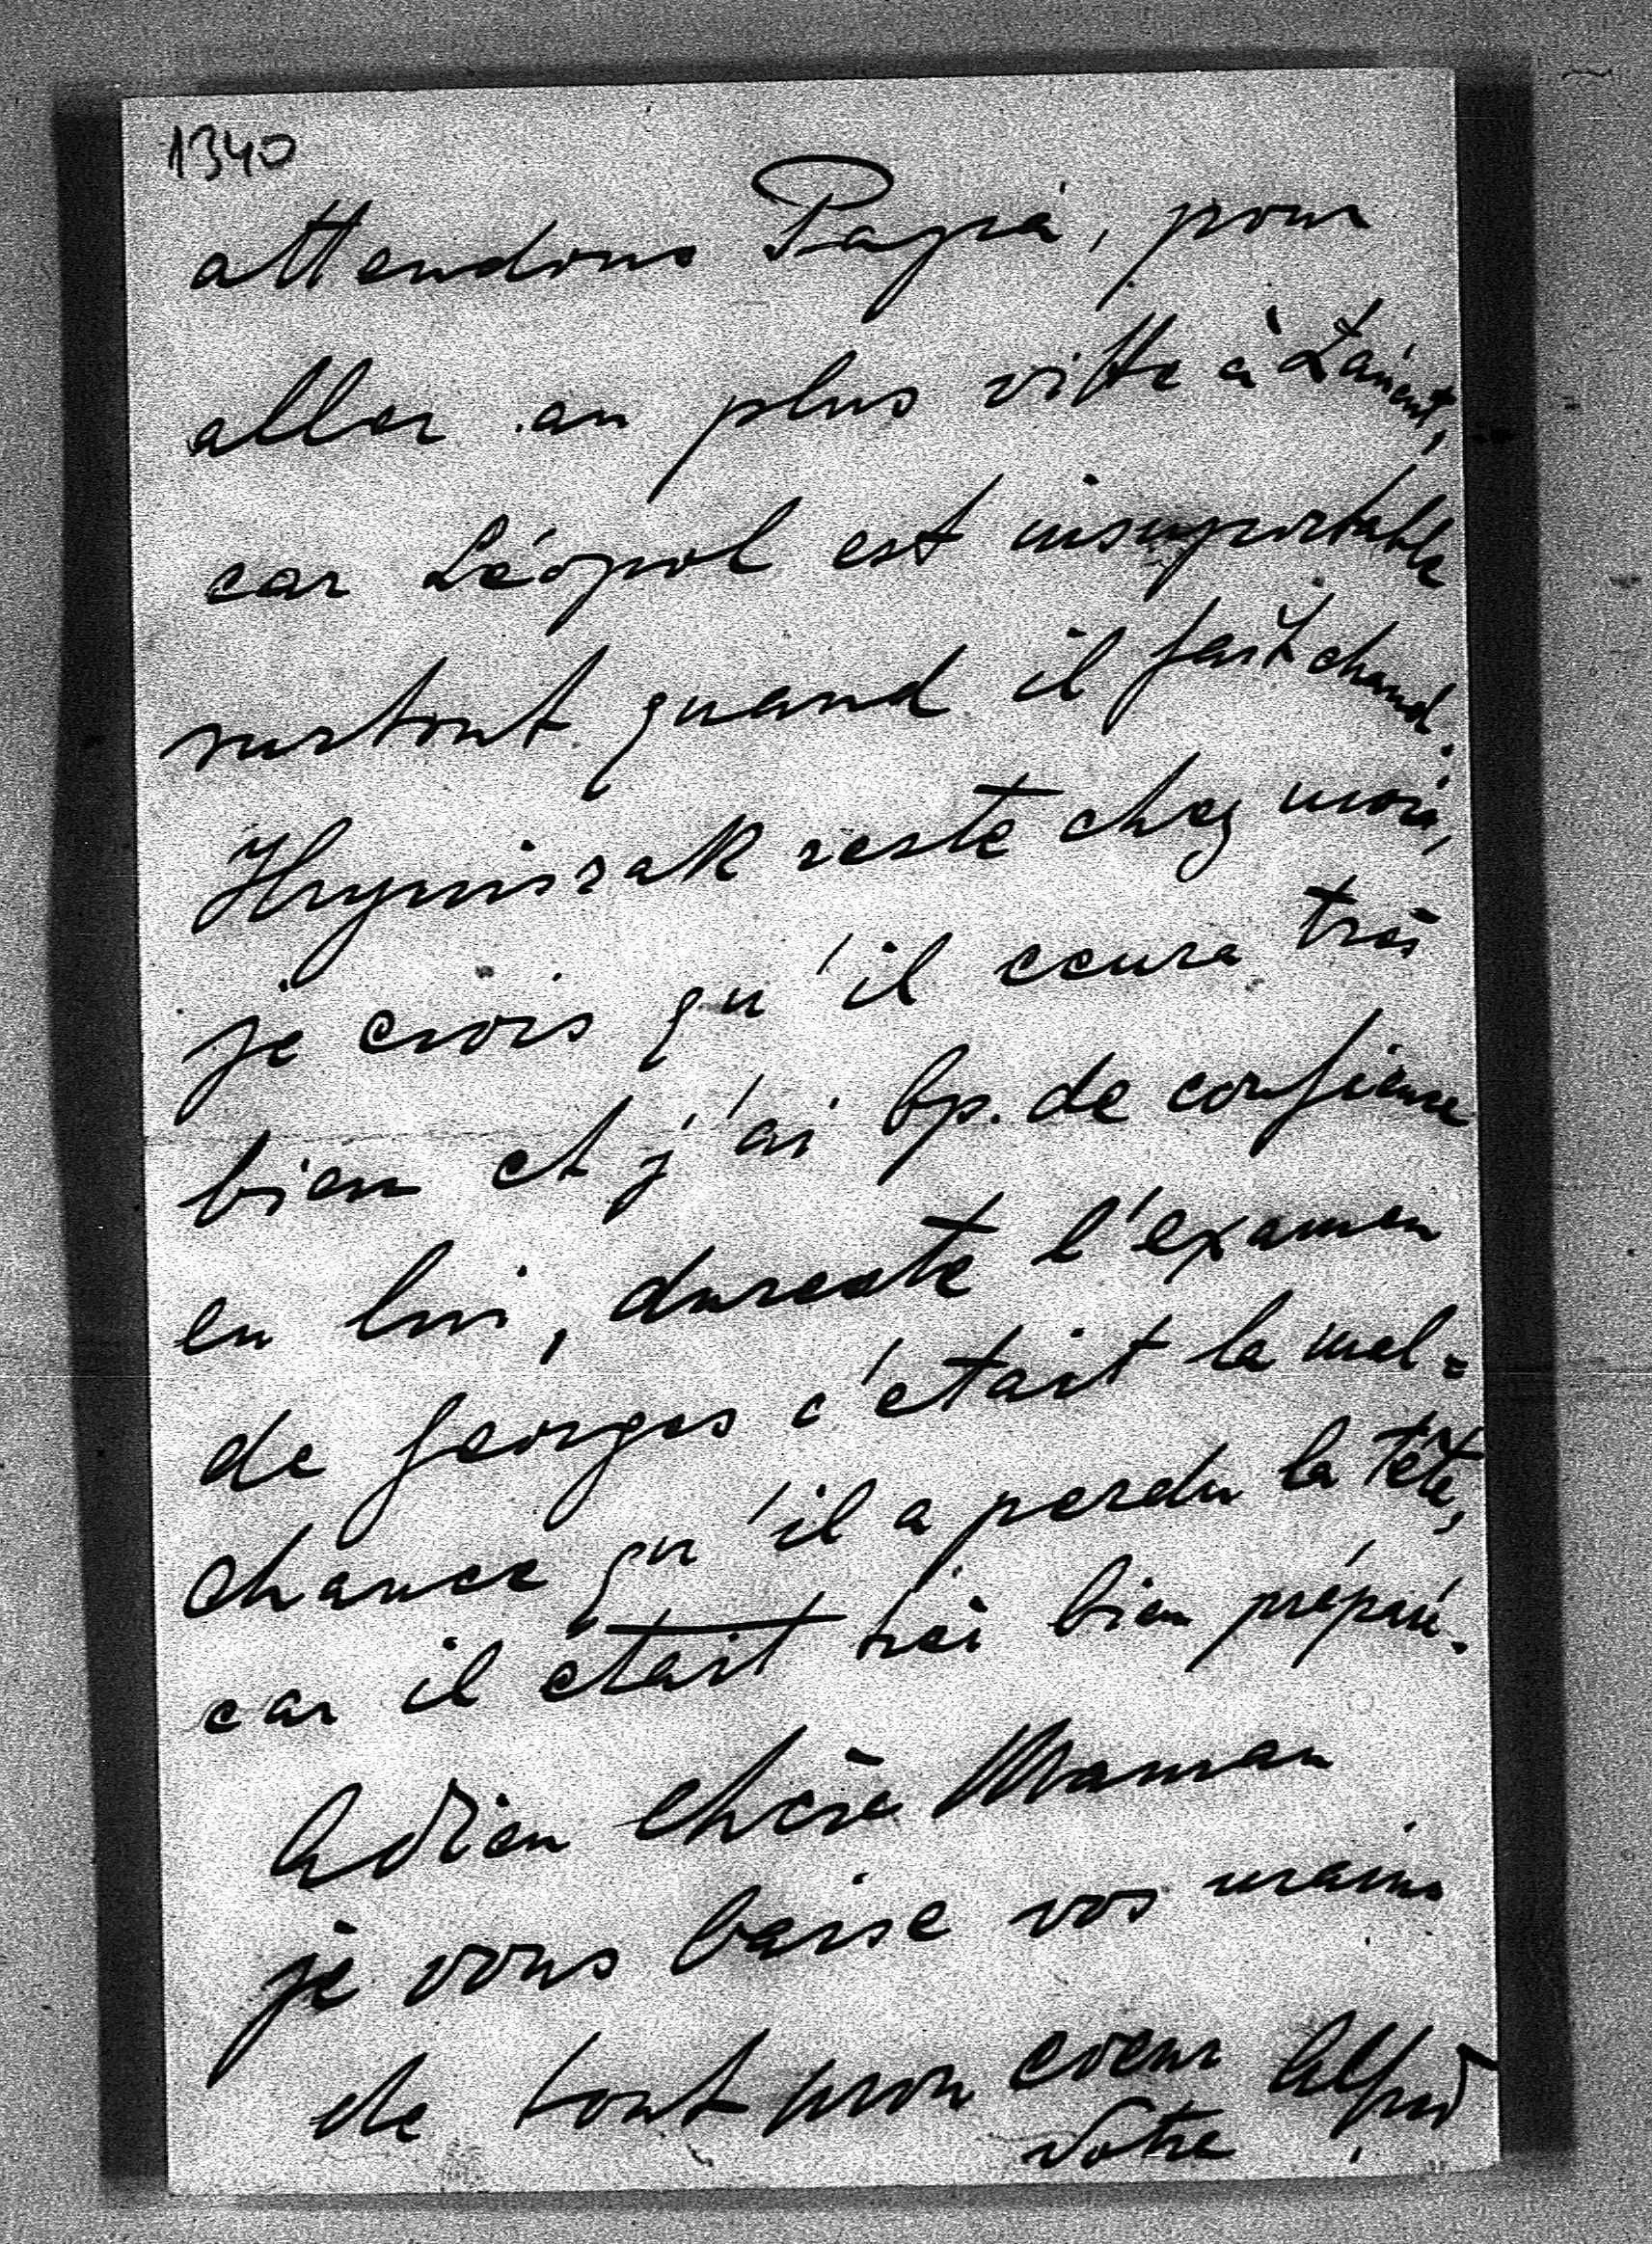 1340
attendons Papá, pour
aller au plus vitte à Łańcut,
car Léopol est insuportable
surtout quand il fait chaud.
reste chez moi,
je crois qu'il ceura très
bien et j'ai bp. de confience
en lui, dureste l'examen
de Georges c'était la mal=
chance qu'il a perdu la tête,
car il était très bien préparé.
Adieu chère Maman
je vous baise vos mains
de tout mon coeur
Votre Alfred